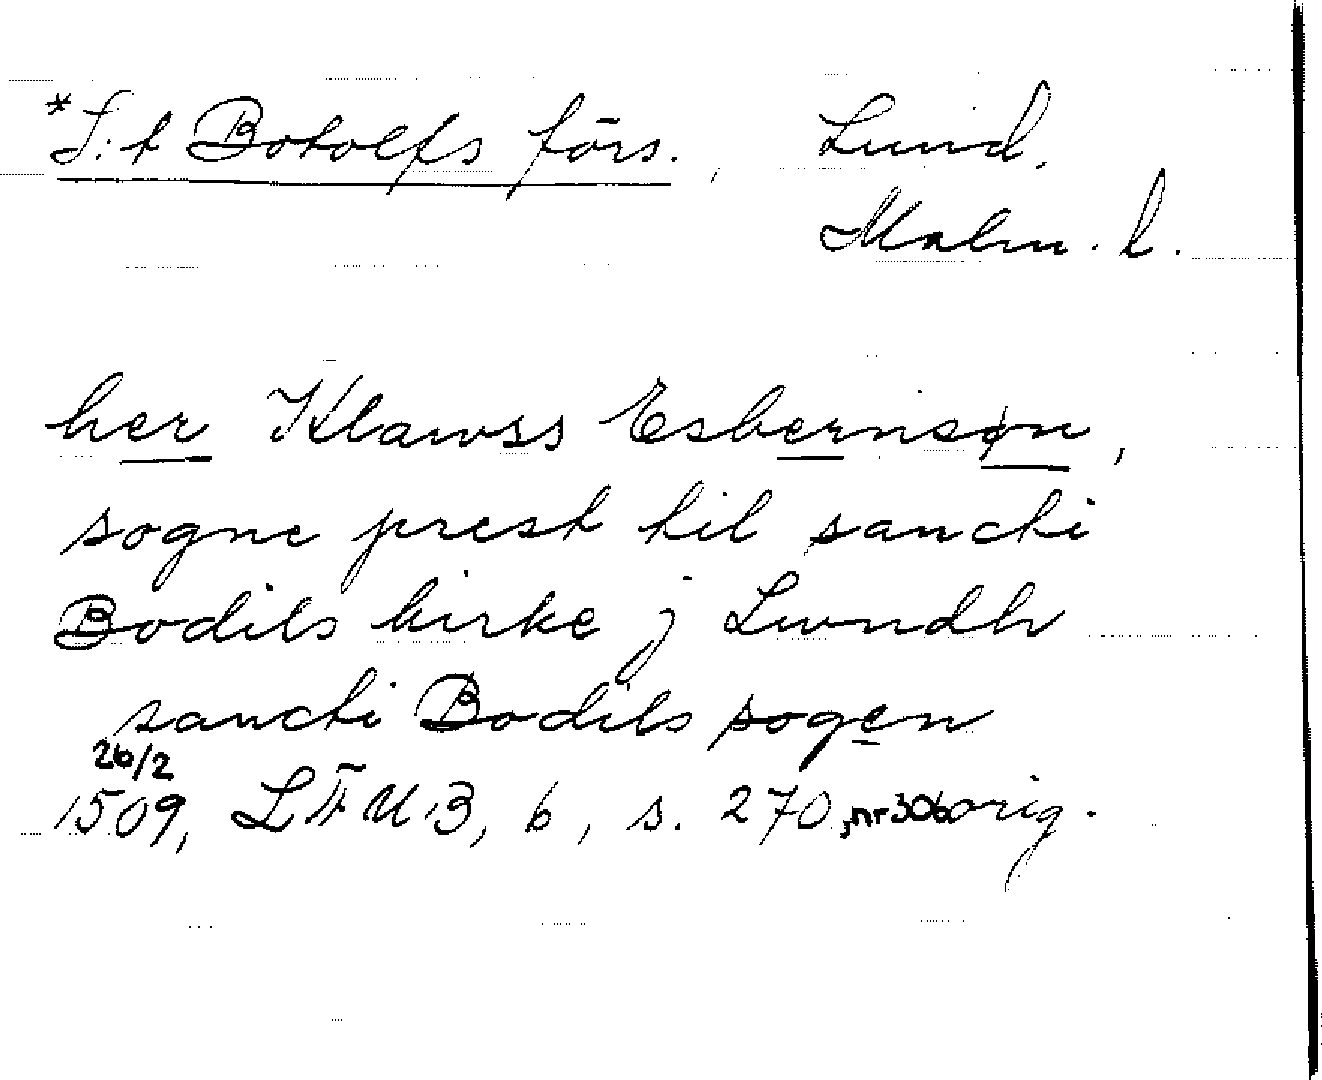 *S:t Botolfs förs., Lund.
Malm. l.
her Klawss Esbernsøn,
sogne prest til sancti
Bodils kirke j Lwndh
sancti Bodils sogen
26/2
1509, LÆUB, 6, s. 270, nr 306 orig.